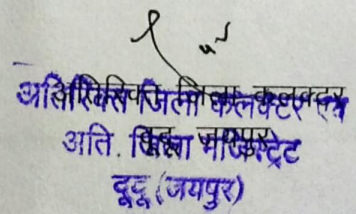 अतिरिक्त जिला कलक्टर एवं
अति. जिला मजिस्ट्रेट
दूदू (जयपुर)